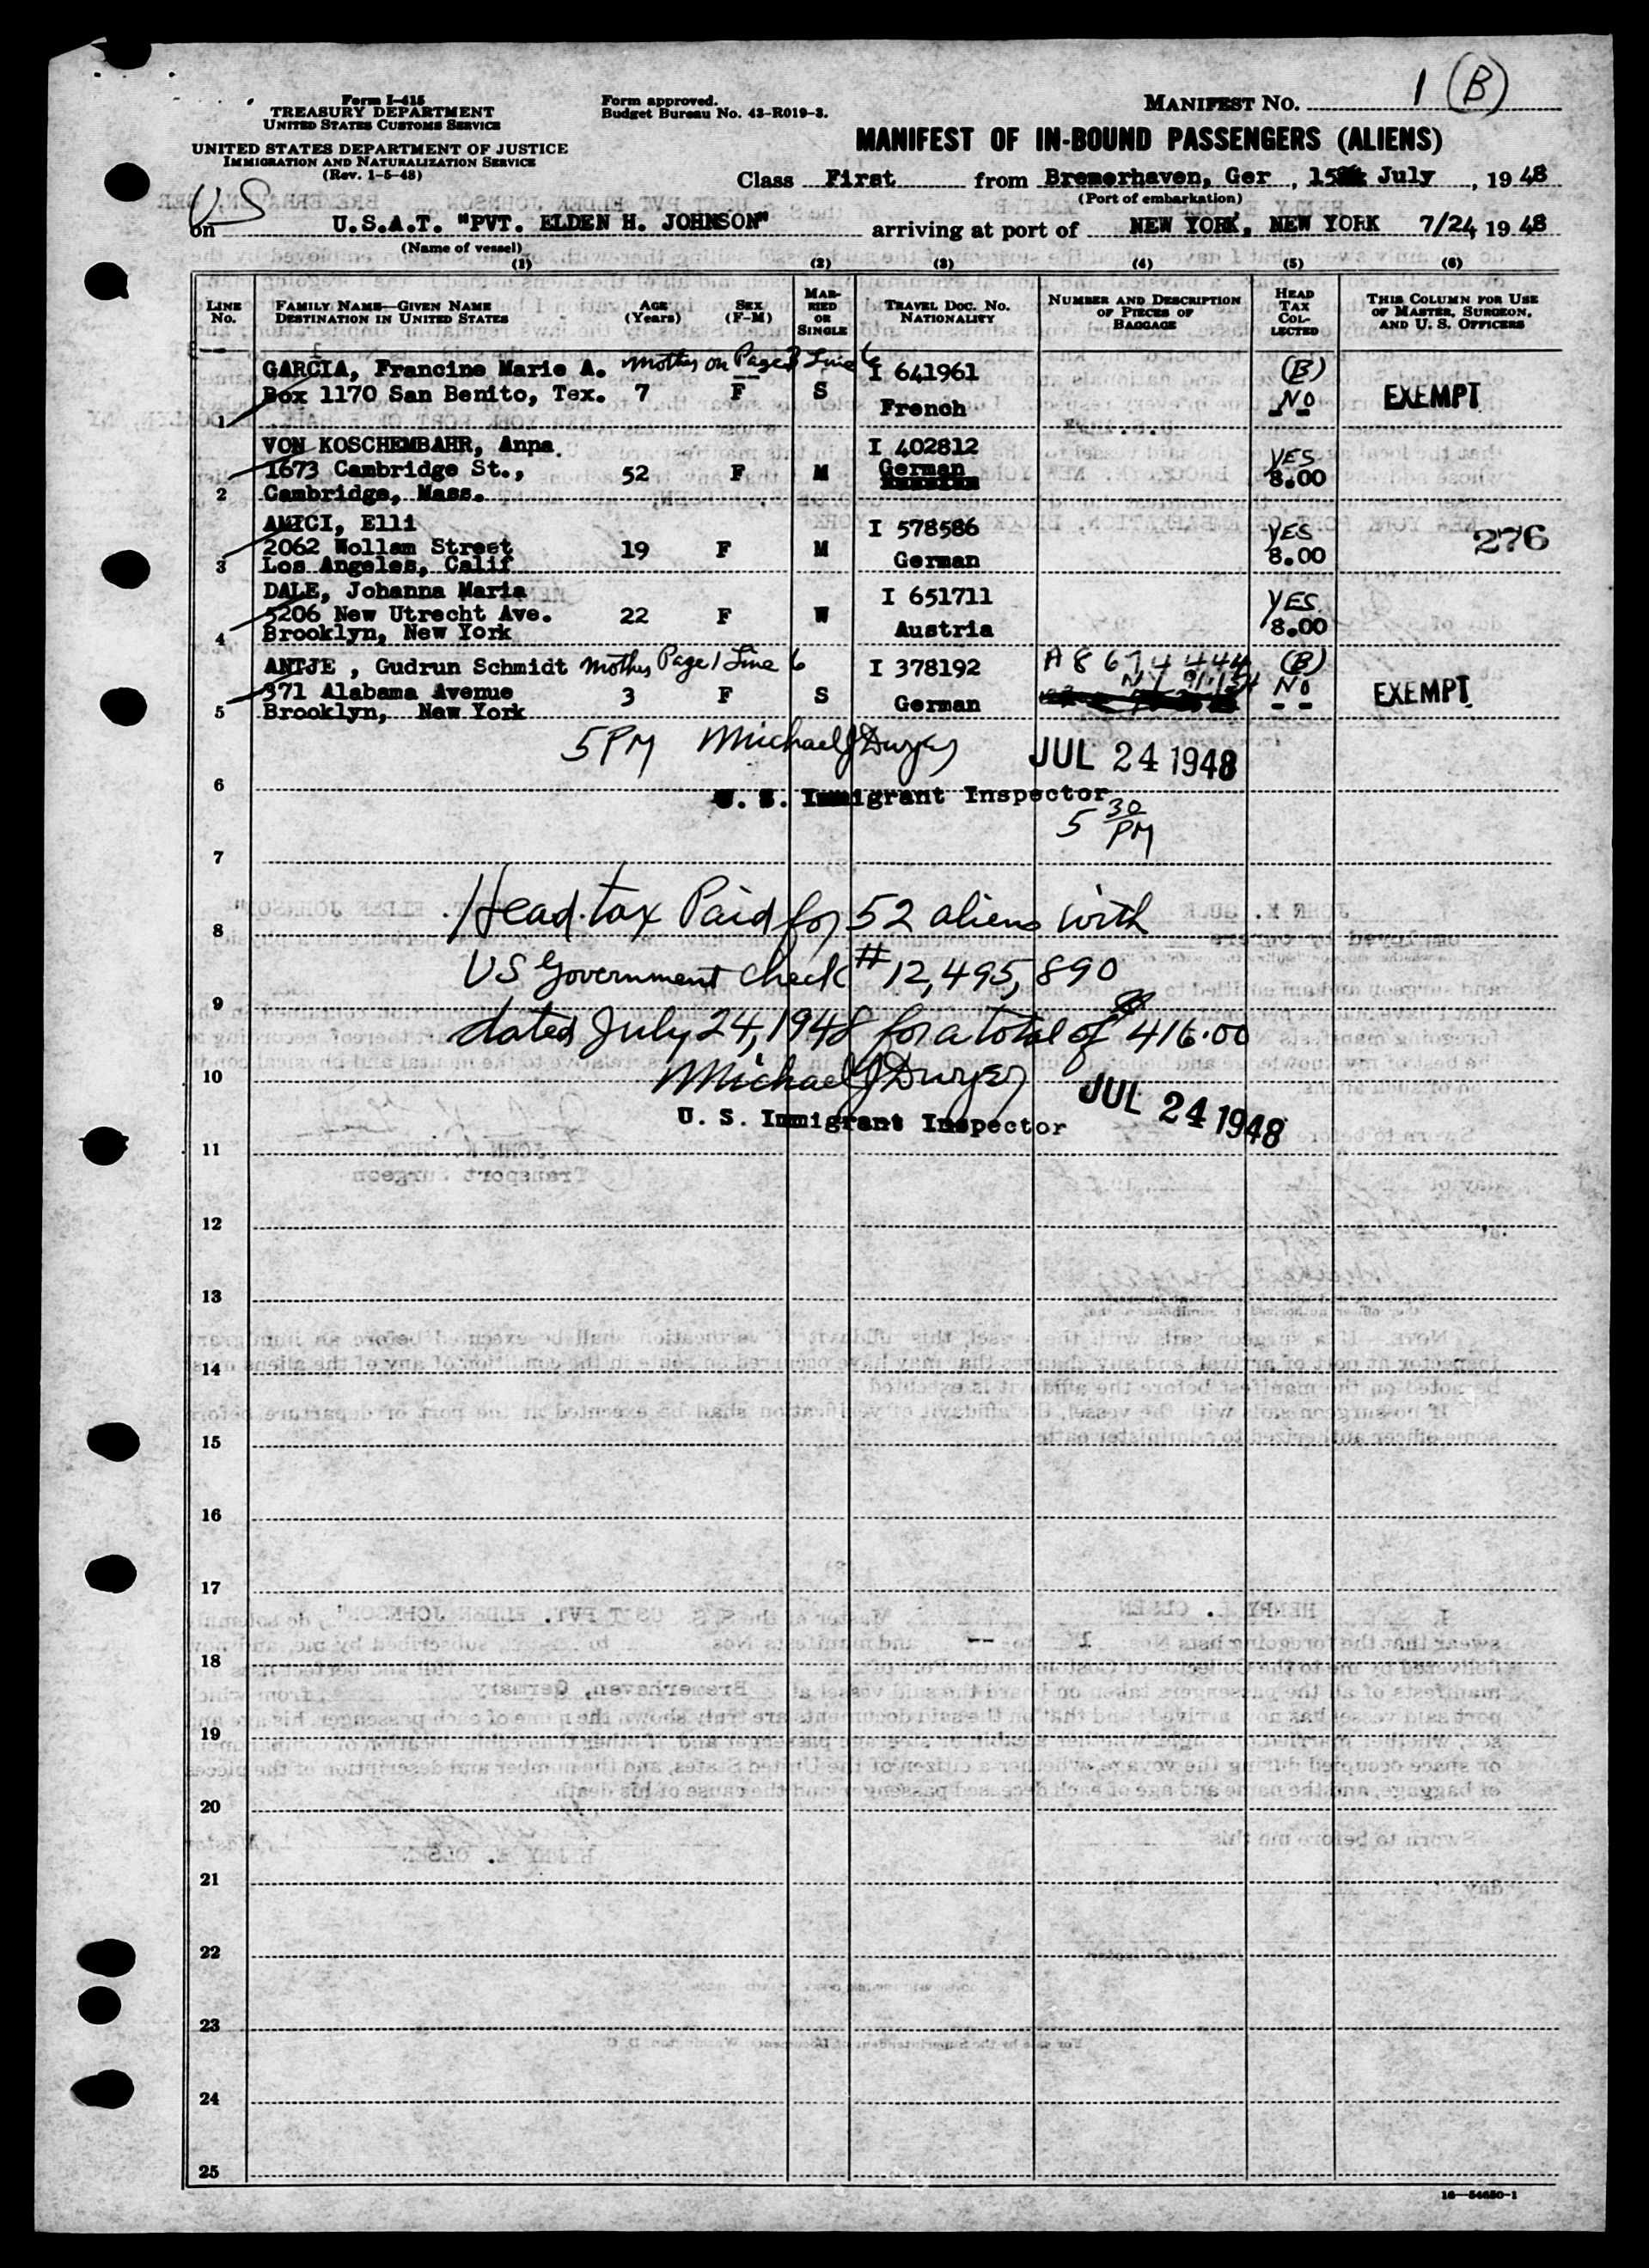 MANIFEST NO. 1 (B)
Form I-415
TREASURY DEPARTMENT
UNITED STATES CUSTOMS SERVICE
UNITED STATES DEPARTMENT OF JUSTICE
IMMIGRATION AND NATURALIZATION SERVICE
(Rev. 1-5-48)
Form approved.
Budget Bureau No. 43-R019-3.
MANIFEST OF IN-BOUND PASSENGERS (ALIENS)
Class First from Bremerhaven, Ger , 15 July , 19 48
(Port of embarkation)
US
on U.S.A.T. "PVT. ELDEN H. JOHNSON" arriving at port of NEW YORK, NEW YORK 7/24, 19 48
(Name of vessel)
(1) (2) (3) (4) (5) (6)
LINE NO.
FAMILY NAME—GIVEN NAME
DESTINATION IN UNITED STATES
AGE (Years)
SEX (F-M)
MARRIED OR SINGLE
TRAVEL DOC. NO.
NATIONALITY
NUMBER AND DESCRIPTION OF PIECES OF BAGGAGE
HEAD TAX COLLECTED
THIS COLUMN FOR USE OF MASTER, SURGEON, AND U. S. OFFICERS
GARCIA, Francine Marie A. Mother on Page 3 Line 6 I 641961 (B)
Box 1170 San Benito, Tex. 7 F S French NO -- EXEMPT
1
VON KOSCHEMBAHR, Anna I 402812
1673 Cambridge St., 52 F M German YES 8.00
2 Cambridge, Mass.
AMICI, Elli I 578586 YES 276
2062 Wollam Street 19 F M German 8.00
3 Los Angeles, Calif
DALE, Johanna Maria I 651711 YES
5206 New Utrecht Ave. 22 F W Austria 8.00
4 Brooklyn, New York
ANTJE , Gudrun Schmidt Mother Page 1 Line 6 I 378192 A8 674 444 (B)
371 Alabama Avenue 3 F S German NO -- EXEMPT
5 Brooklyn, New York
5 PM Michael J Dwyer JUL 24 1948
6
U. S. Immigrant Inspector
5 30 PM
7
Head tax Paid for 52 aliens with
8
US Government check # 12,495,890
9
dated July 24, 1948 for a total of $ 416.00
10
Michael J Dwyer JUL 24 1948
U. S. Immigrant Inspector
11
12
13
14
15
16
17
18
19
20
21
22
23
24
25
16—54650-1